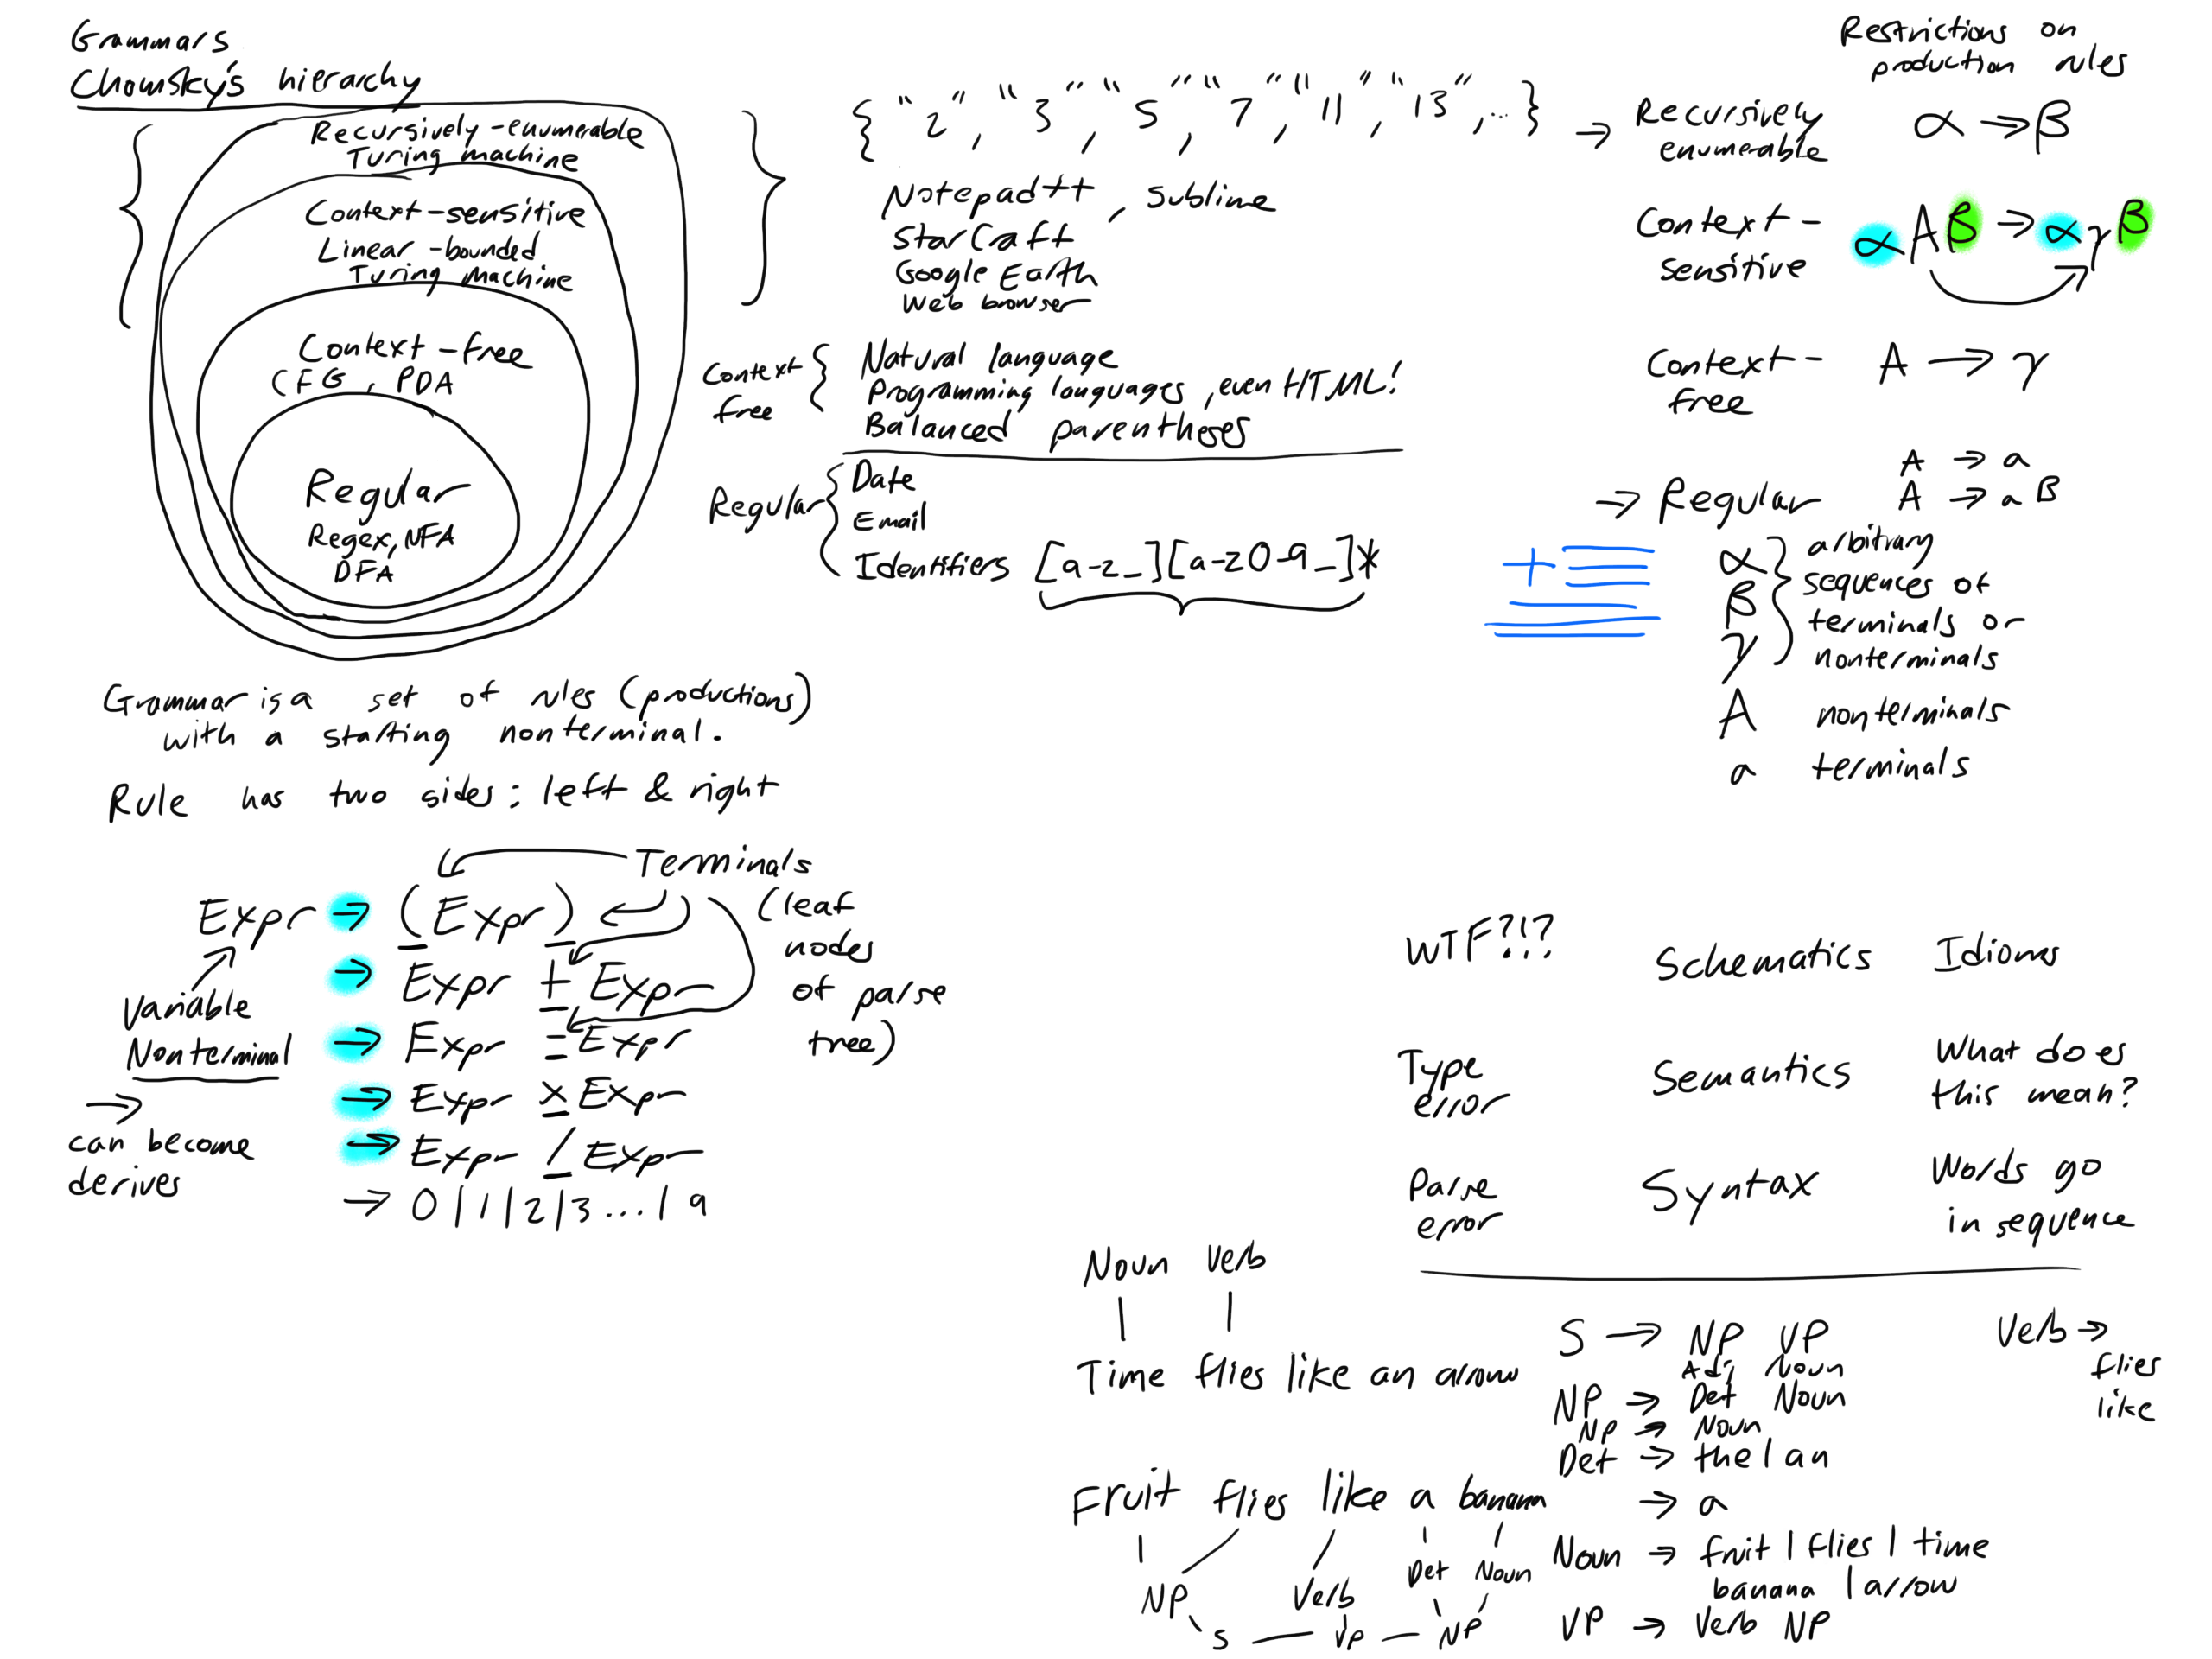 Grammars
Chomsky's hierarchy
Recursively-enumerable
Turing machine
Context-sensitive
Linear-bounded
Turing machine
Context-free
CFG, PDA
Regular
Regex, NFA
DFA
{ "2", "3", "5", "7", "11", "13", ... }
Notepad++, Sublime
StarCraft
Google Earth
Web browser
Context free {
Natural language
Programming languages, even HTML!
Balanced parentheses
Regular {
Date
Email
Identifiers [a-z_][a-z0-9_]*
Restrictions on
production rules
→ Recursively enumerable α → β
Context-sensitive αAβ → αγβ
Context-free A → γ
→ Regular A → a
A → a B
α
β
γ
} arbitrary
sequences of
terminals or
nonterminals
A nonterminals
a terminals
Grammar is a set of rules (productions)
with a starting nonterminal.
Rule has two sides: left & right
Terminals
(leaf
nodes
of parse
tree)
Expr → (Expr)
→ Expr + Expr
→ Expr - Expr
→ Expr × Expr
→ Expr / Expr
→ 0|1|2|3...|9
Variable
Nonterminal
→
can become
derives
WTF?!? Schematics Idioms
Type error Semantics What does this mean?
Parse error Syntax Words go in sequence
Noun Verb
Time flies like an arrow
Fruit flies like a banana
Det Noun
NP Verb
S VP NP
S → NP VP
Adj Noun
NP → Det Noun
NP → Noun
Det → the | an
→ a
Noun → fruit | flies | time
banana | arrow
VP → Verb NP
Verb →
flies
like